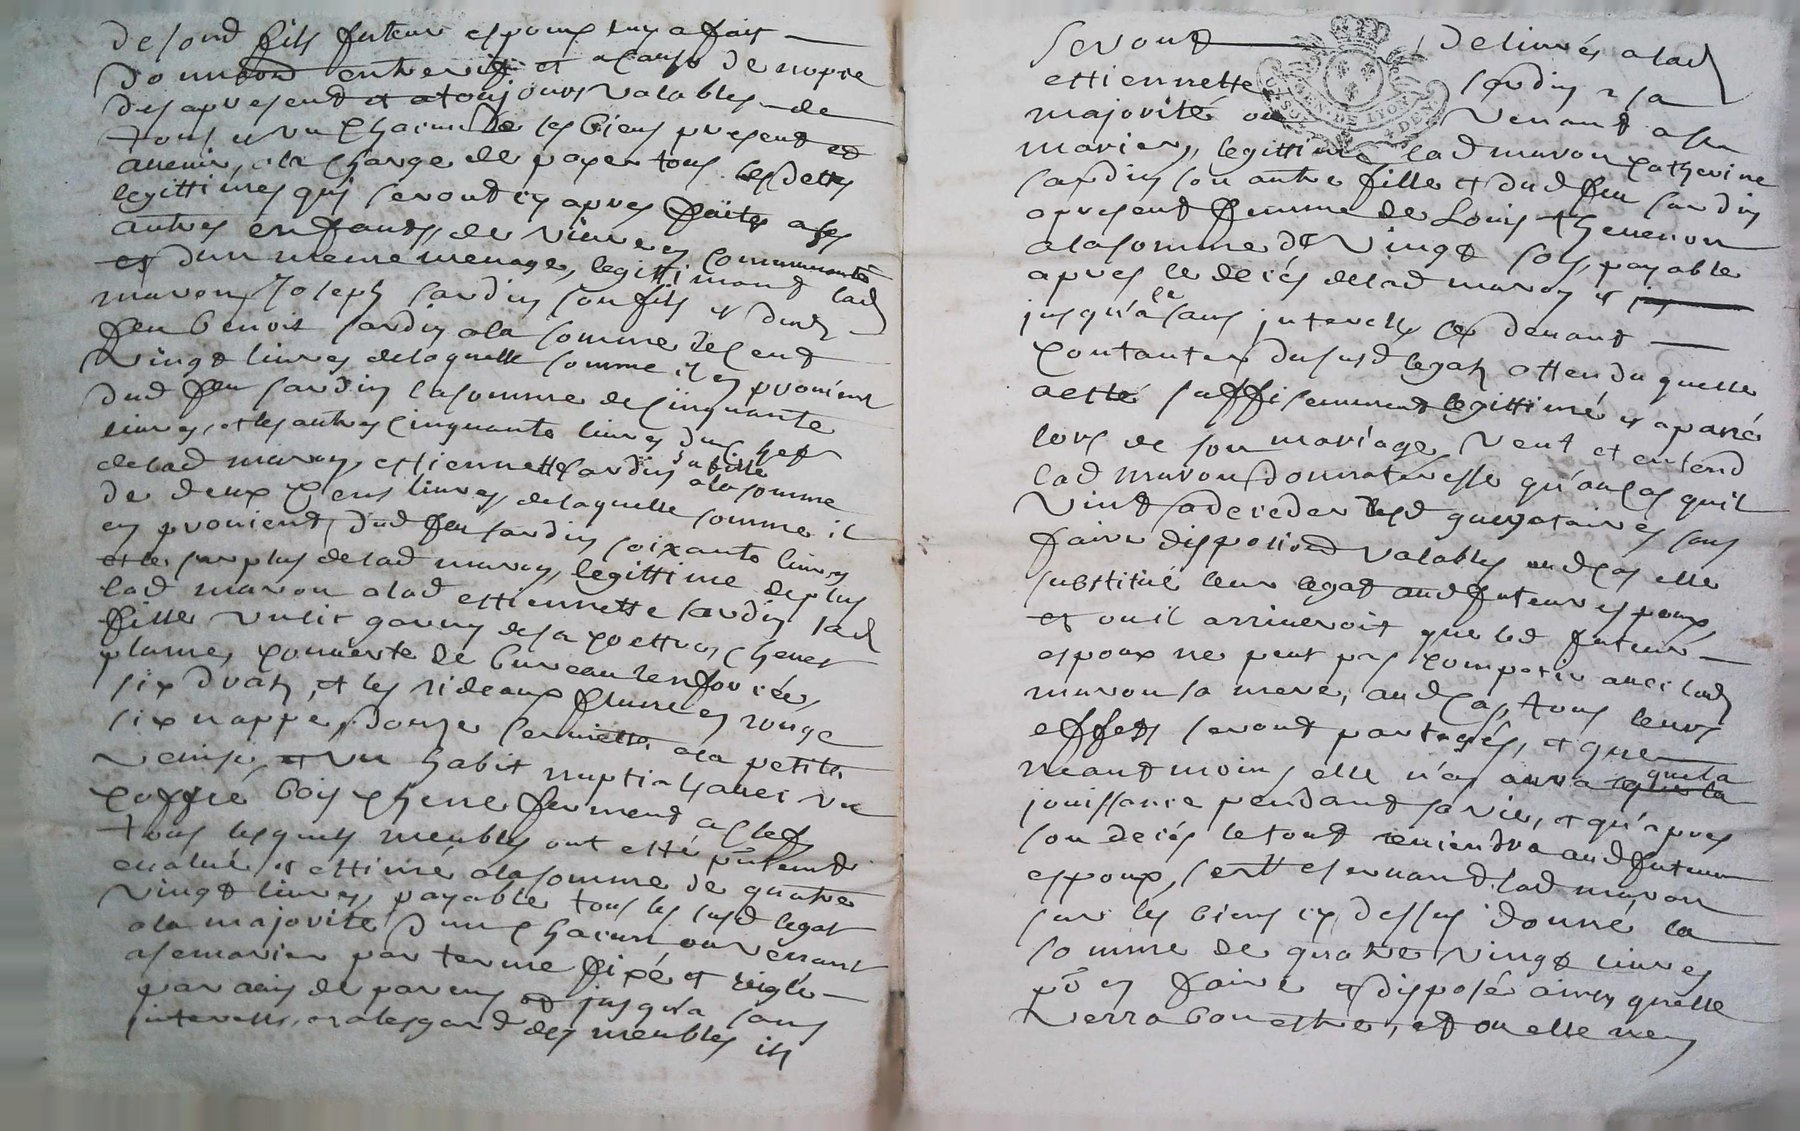 de sond fils futeur espoux luy a fait
donnaōn entre vifs et a cause de nopce
des apresent et atousjours valables de
tous et un chacun les biens present et
avenir, a la charge de payer tous les dettes
legittimes qui seront cy apres faites a ses
autres enfants, de vivre en communauté
et d'un meme menage, legittimant lad
maron Joseph sardin son fils et dud
feu benoit sardin a la somme de cent
vingt livres de laquelle somme il en provient
dud feu sardin la somme de cinquante
livres, et les autres cinquante livres du chef
de lad maron, ettiennette sardin sa fille a la somme
de deux cens livres, de laquelle somme il
en provient, dud feu sardin soixante livres
et le surplus de lad maron, legittime de plus
lad maron a lad ettiennette sardin sad
fille un lit garny de sa coettre, chevet
plume, couverte de bureau renforcée,
six drats, et les rideaux en rouge
six nappe, douze serviettes a la petite
venise, et un habit nuptial avec un
coffre bois chene fermant a clef
tous lesquels meubles ont esté pūtement
evalué et ettimé a la somme de quatre
vingt livres, payable tous les susd legat
a la majorité d'un chacun ou venant
a se marier par terme fixé et reiglé
par avis de parens et jusqu'a sans
interests, et a l'esgard des meubles ils
seront delivrés a lad
ettiennette sardin a sa
majorité ou venant a se
marier, legittime lad maron catherine
sardin son autre fille et dud feu sardin
apresent femme de Louis thevenon
a la somme de vingt sols, payable
apres le decés de lad maron et
jusqu'a le sans interests se devant
contanter du susd legat attendu quelle
a esté suffisemment legittimé et aparié
lors de son mariage, veut et entend
lad maron donnateresse qu'au cas quil
vint a deceder lesd legataires sans
faire disposiond valables aud cas elle
substitué leur legat aud futeur espoux,
et ou il arriveroit que led futeur
espoux ne peut pas compatir avec lad
maron sa mere, aud cas, tous leurs
effets seront partagés, et que
neantmoins elle n'en aura que la
jouissance pendant sa vie, et qu'apres
son decés le tout reviendra aud futeur
espoux, s'est reservant lad maron
sur les biens cy dessus donné la
somme de quatre vingt livres
pr en faire et disposé ainsy quelle
verra bon estre, et ou elle n'en
GEN DE LYON